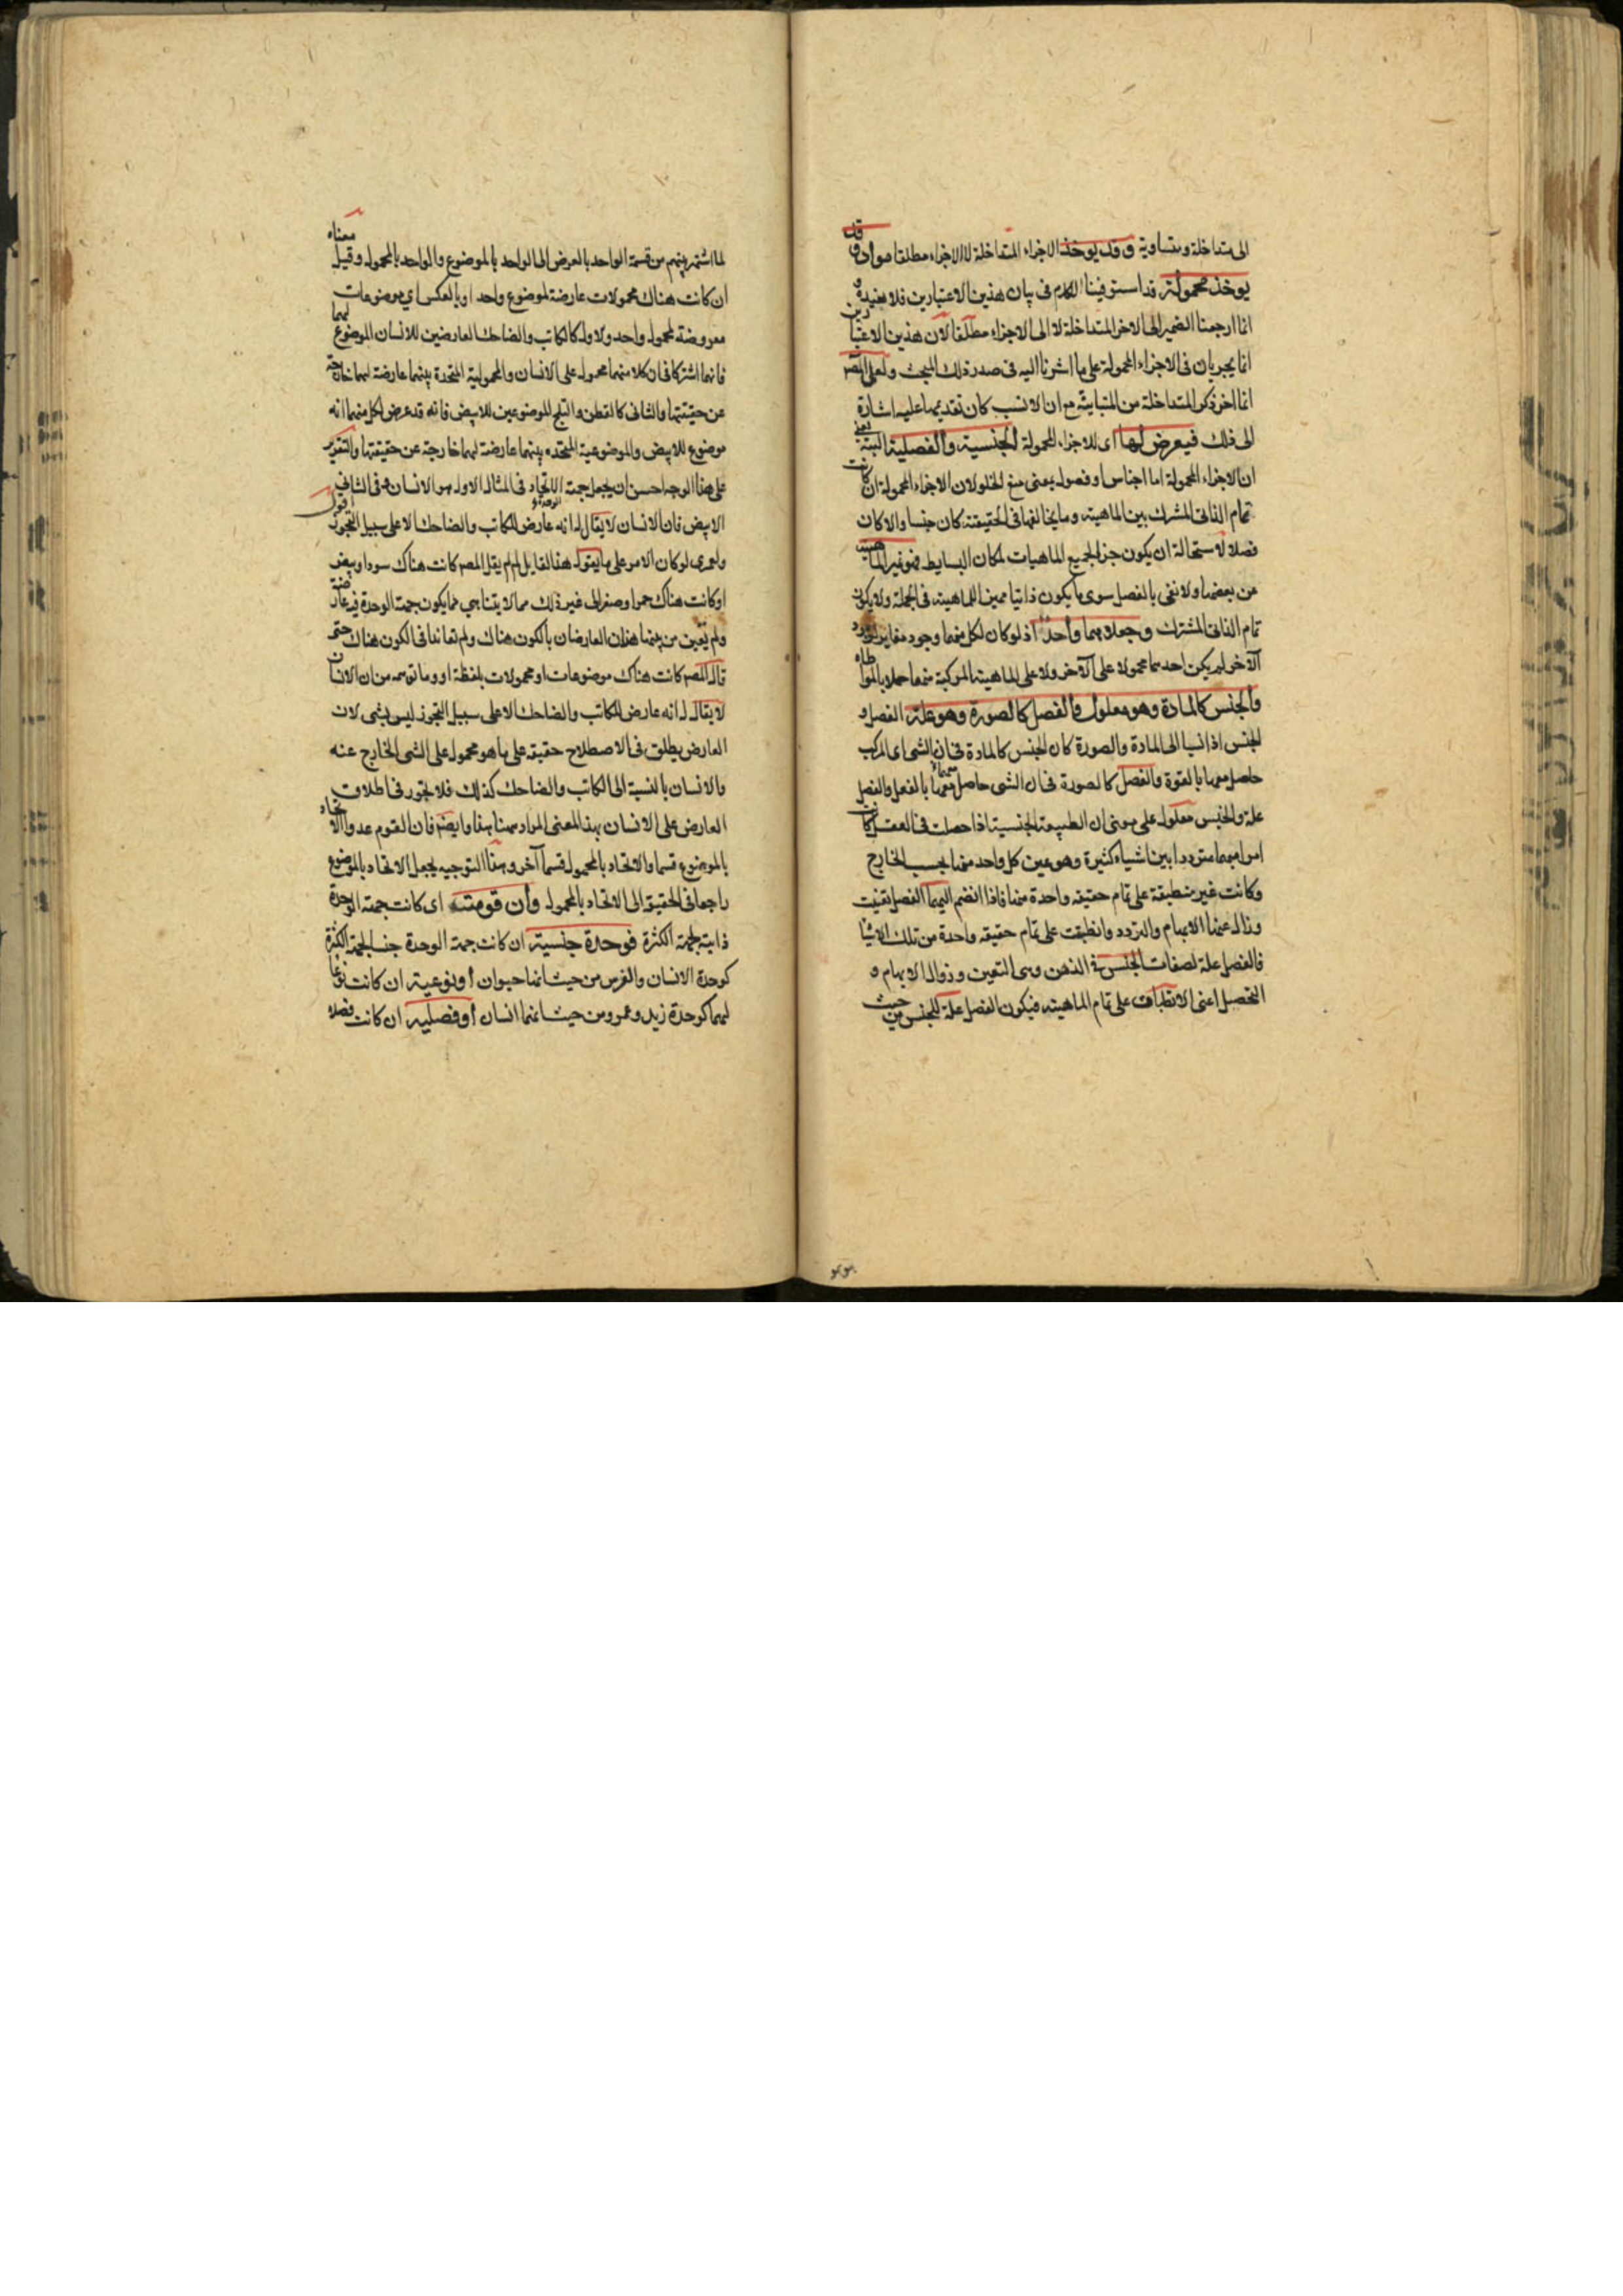 الى متداخلة ومتساوية وقد يوخذ الاجزاء المتداخلة لا الاجزاء مطلقا مواد وقد
يوخذ محمولة قد استوفينا الكلام فى بيان هذين الاعتبارين فلا نعيده و
انما ارجعنا الضمير الى الاجزاء المتداخلة لا الى الاجزاء مطلقا لان هذين الاعتبارين
انما يجريان فى الاجزاء المحمولة على ما اشرنا اليه فى صدر ذلك المبحث ولعل المصـ
انما اخر ذكر المتداخلة من المتباينة مع ان الانسب كان تقديمها عليه اشارة
الى ذلك فيعرض لها اى للاجزاء المحمولة الجنسية والفصلية البتة يعنى
ان الاجزاء المحمولة اما اجناس او فصول بمعنى منع الخلو لان الاجزاء المحمولة ان كانت
تمام الذاتى المشترك بين الماهية وما يخالفها فى الحقيقة كان جنسا والا كان
فصلا لاستحالة ان يكون جزء الجميع الماهيات لمكان البسايط فهو غير الماهية
عن بعضها ولا نعنى بالفصل سوى ما يكون ذاتيا مميزا للماهية فى الجملة ولا يكون
تمام الذاتى المشترك وجعلاهما واحد اذ لو كان لكل منهما وجود مغاير لوجود
الآخر لم يكن احدهما محمولا على الآخر ولا على الماهية المركبة منهما حملا بالمواطاه
والجنس كالمادة وهو معلول والفصل كالصورة وهو علة الفصل و
الجنس اذا نسبا الى المادة والصورة كان الجنس كالمادة فى ان الشى اى المركب
حاصل معها بالقوة والفصل كالصورة فى ان الشى حاصل معها بالفعل والفصل
علة والجنس معلول على معنى ان الطبيعة الجنسية اذا حصلت فى العقل كانت
امرا مبهما مترددا بين اشياء كثيرة وهو عين كل واحد منها بحسب الخارج
وكانت غير منطبقة على تمام حقيقة واحدة منها فاذا انضم اليها الفصل تعينت
وزال عنها الابهام والتردد وانطبقت على تمام حقيقة واحدة من تلك الاشيا
فالفصل علة لصفات الجنس فى الذهن وهى التعين وزوال الابهام و
التحصل اعنى الانطباق على تمام الماهية فيكون الفصل علة للجنس من حيث
لما اشتهر بينهم من قسمة الواحد بالعرض الى الواحد بالموضوع والواحد بالمحمول وقيل معناه
ان كانت هناك محمولات عارضة لموضوع واحد او بالعكس اى موضوعات
معروضة لمحمول واحد والاول كالكاتب والضاحك العارضين للانسان الموضوع لهما
فانهما اشتركا فى ان كلا منهما محمول على الانسان والمحمولية المتحدة بينهما عارضة لهما خارجة
عن حقيقتهما والثانى كالقطن والثلج الموضوعين للابيض فانه قد عرض لكل منهما انه
موضوع للابيض والموضوعية المتحده بينهما عارضة لهما خارجة عن حقيقتهما والتقرير
على هذا الوجه احسن ان يجعل جهة الاتحاد فى المثال الاول هو الانسان وفى الثانى
الابيض فان الانسان لا يقال له انه عارض للكاتب والضاحك الا على سبيل التجوز اقول
ولعمرى لو كان الامر على ما يقول هذا القايل لم لم يقل المصـ كانت هناك سودا وبيض
او كانت هناك حمرا وصفر الى غير ذلك مما لا يتناهى مما يكون جهة الوحدة فيه عارضة
ولم تعين من بينها هذان العارضان بالكون هناك ولم تعاندا فى الكون هناك حتى
قال المصـ كانت هناك موضوعات او محمولات بلفظة او وما توهمه من ان الانسان
لا يقال له انه عارض للكاتب والضاحك الا على سبيل التجوز ليس بشى لان
العارض يطلق فى الاصطلاح حقيقة على ما هو محمول على الشى الخارج عنه
والانسان بالنسبة الى الكاتب والضاحك كذلك فلا تجوز فى اطلاق
العارض على الانسان بهذا المعنى المراد ههنا هذا وايضـ فان القوم عدوا الاتحاد
بالموضوع قسما والاتحاد بالمحمول قسما آخر وهذا التوجيه يجعل الاتحاد بالموضوع
راجعا فى الحقيقة الى الاتحاد بالمحمول وان قومته اى كانت جهة الوحدة
ذاتية لجهة الكثرة فوحدة جنسية ان كانت جهة الوحدة جنسا لجهة الكثرة
كوحدة الانسان والفرس من حيث انهما حيوان او نوعية ان كانت نوعا
لهما كوحدة زيد وعمرو من حيث انهما انسان او فصلية ان كانت فصلا